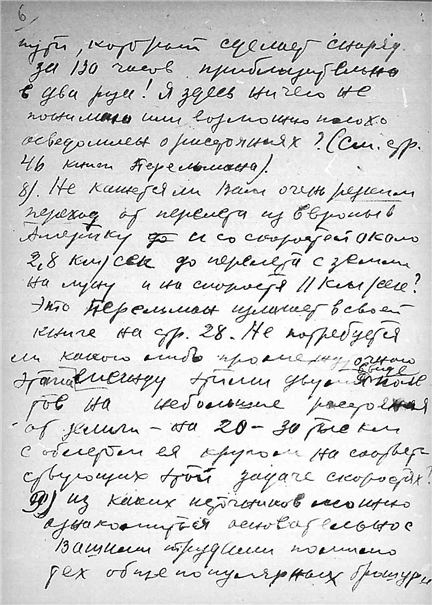 6
пути, который сделает снаряд
за 130 часов приблизительно
в два раза! Я здесь ничего не
понимаю или возможно плохо
осведомлен о расстояниях? (См. стр.
46 книги Перельмана).
8). Не кажется ли Вам очень резким
переход от перелета из Европы в
Америку со скоростью около
2,8 км/сек до перелета с земли
на луну и на скорости 11 км/сек?
Это Перельман излагает в своей
книге на стр. 28. Не потребуется
ли какого либо промежуточного
этапа в виде между этими двумя
тов на небольшие расстояния
от земли – на 20-30 тыс км
с облетом ея кругом на соответ-
ствующих этой задаче скоростях?
9) из каких источников можно
ознакомиться основательнее с
Вашими трудами помимо
тех общепопулярных брошюр и